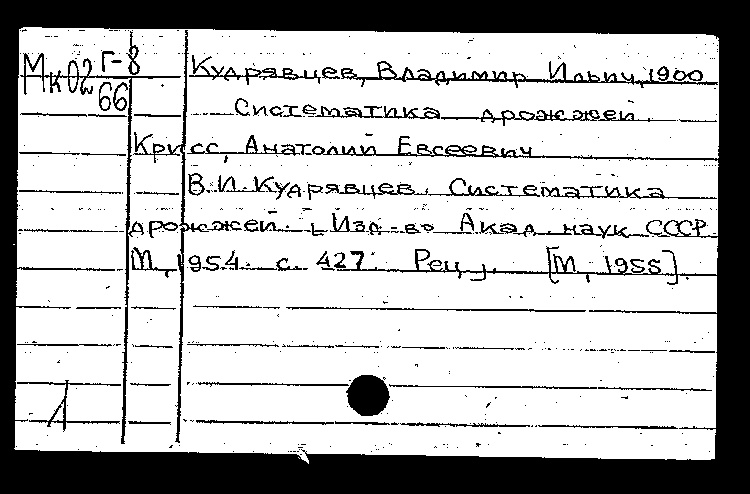 Мк02 Г-8
66
Кудрявцев, Владимир Ильич, 1900
Систематика дрожжей.
Крисс, Анатолий Евсеевич
В.И. Кудрявцев. Систематика
дрожжей. [Изд-во Акад. наук СССР.
М., 1954. с. 427. Рец.]. [М., 1955].
1